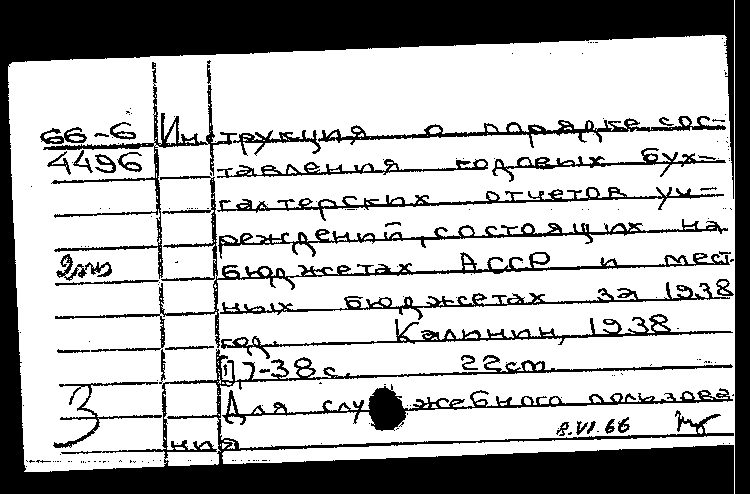 66-6 Инструкция о порядке сос-
4496 тавления годовых бух-
галтерских отчетов уч-
реждений, состоящих на
2экз бюджетах АССР и мест
ных бюджетах за 1938
год. Калинин, 1938.
[1], 7-38 с. 22 cm.
3 Для служебного пользова
ния 8.VI.66